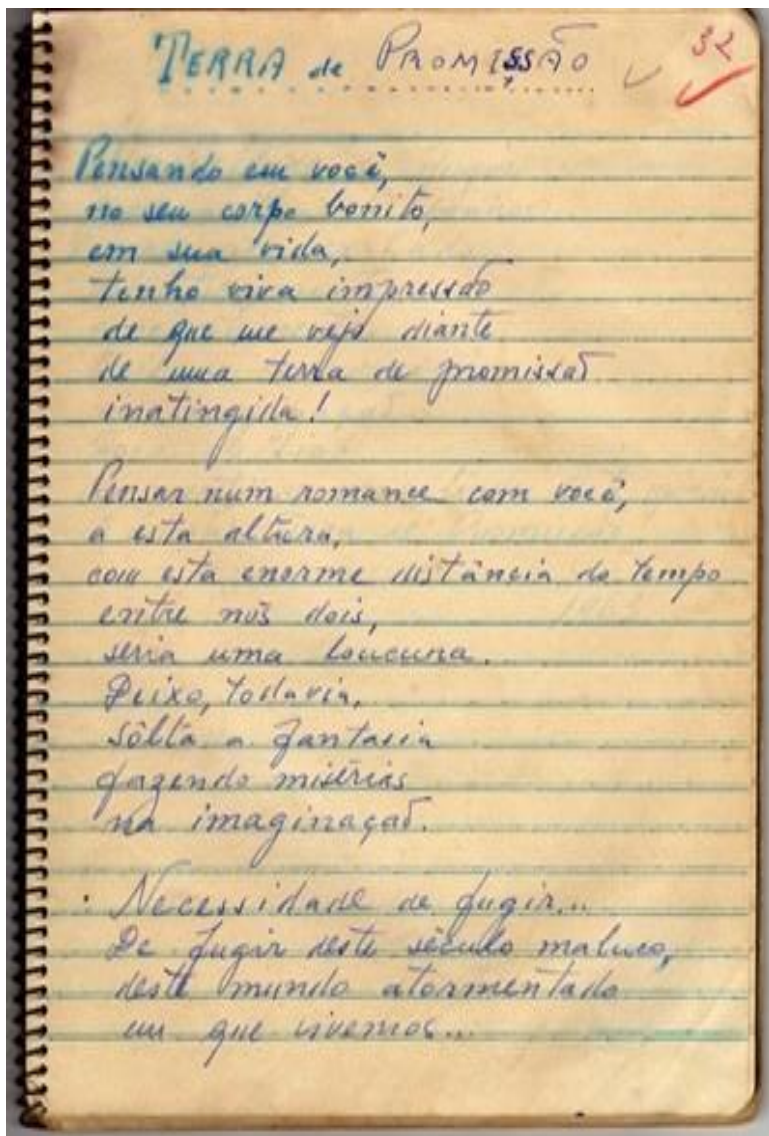 TERRA de PROMISSÃO
32
Pensando em você,
no seu corpo bonito,
em sua vida,
tenho viva impressão
de que me vejo diante
de uma terra de promissão
inatingida!
Pensar num romance com você,
a esta altura,
com esta enorme distância do tempo
entre nós dois,
seria uma loucura.
Deixo, todavia,
sôlta a fantasia
fazendo misérias
na imaginação.
Necessidade de fugir...
De fugir deste século maluco,
deste mundo atormentado
em que vivemos...